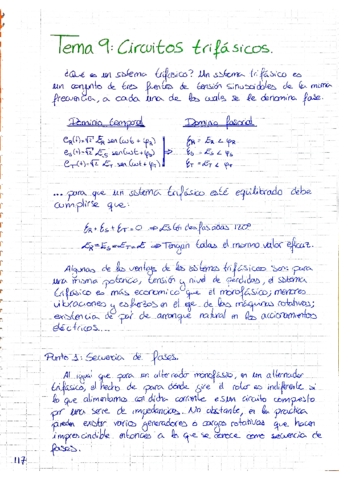 Tema 9: Circuitos trifásicos.
¿Qué es un sistema trifásico? Un sistema trifásico es
un conjunto de tres fuentes de tensión sinusoidales de la misma
frecuencia, a cada una de las cuales se le denomina fase.
Dominio temporal Dominio fasorial
e_R(t)=√2 E_R sen(ωt + φ_R) E_R = E_R ∠ φ_R
e_S(t)=√2 E_S sen(ωt + φ_S) ⇒ E_S = E_S ∠ φ_S
e_T(t)=√2 E_T sen(ωt + φ_T) E_T = E_T ∠ φ_T
... para que un sistema trifásico esté equilibrado debe
cumplirse que:
E_R + E_S + E_T = 0 ⇒ Están desfasadas 120º
E_R = E_S = E_T = E ⇒ Tengan todas el mismo valor eficaz.
Algunas de las ventajas de los sistemas trifásicos son: para
una misma potencia, tensión y nivel de pérdidas, el sistema
trifásico es más economico que el monofásico; menores
vibraciones y esfuerzos en el eje de las máquinas rotativas;
existencia de par de arranque natural en los accionamientos
eléctricos....
Punto 1: Secuencia de fases.
Al igual que para un alternador monofásico, en un alternador
trifásico, el hecho de para dónde gire el rotor es indiferente si
lo que alimentamos con dicha corriente es un circuito compuesto
por una serie de impedancias. No obstante, en la práctica
pueden existir varios generadores o cargas rotativas que hacen
imprescindible entonces a lo que se conoce como secuencia de
fases.
117